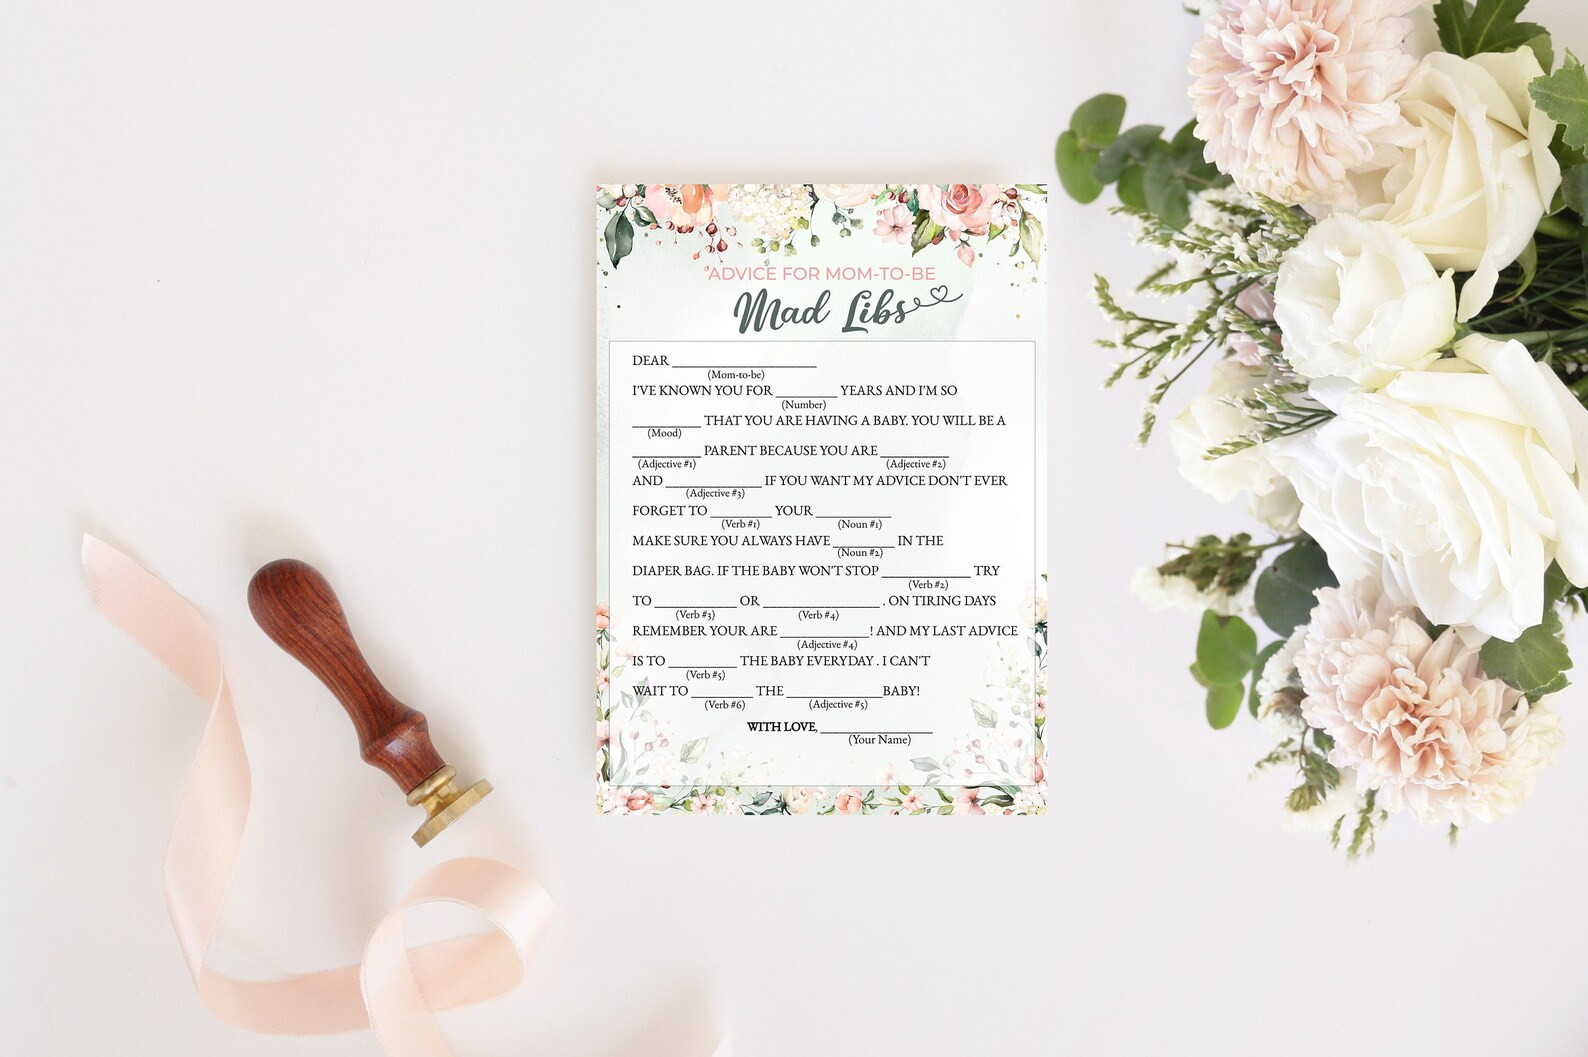 ADVICE FOR MOM-TO-BE
Mad Libs
DEAR ____________________
(Mom-to-be)
I'VE KNOWN YOU FOR _________ YEARS AND I'M SO
(Number)
__________ THAT YOU ARE HAVING A BABY. YOU WILL BE A
(Mood)
__________ PARENT BECAUSE YOU ARE __________
(Adjective #1) (Adjective #2)
AND ______________ IF YOU WANT MY ADVICE DON'T EVER
(Adjective #3)
FORGET TO _________ YOUR ___________
(Verb #1) (Noun #1)
MAKE SURE YOU ALWAYS HAVE _________ IN THE
(Noun #2)
DIAPER BAG. IF THE BABY WON'T STOP _____________ TRY
(Verb #2)
TO ____________ OR _________________ . ON TIRING DAYS
(Verb #3) (Verb #4)
REMEMBER YOUR ARE _____________! AND MY LAST ADVICE
(Adjective #4)
IS TO __________ THE BABY EVERYDAY . I CAN'T
(Verb #5)
WAIT TO _________ THE ______________BABY!
(Verb #6) (Adjective #5)
WITH LOVE, ________________
(Your Name)